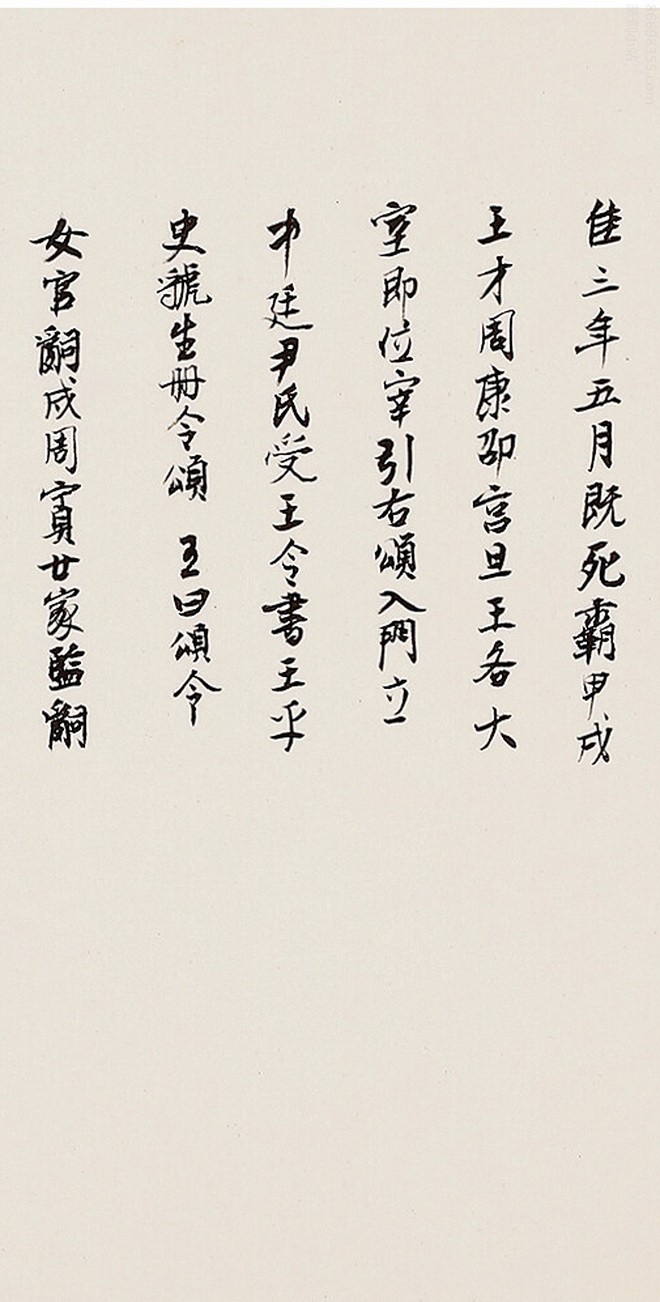 隹三年五月既死霸甲戌
王才周康卲宫旦王各大
室即位宰引右頌入門立
中廷尹氏受王令書王乎
史虢生册令頌 王曰頌令
女官𤔲成周賓廿家監𤔲